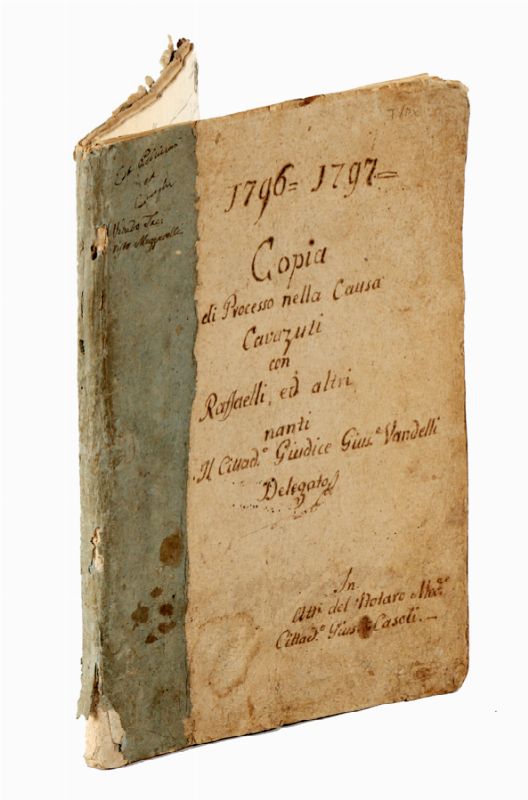 1796= 1797=
Copia
di Processo nella Causa
Cavazuti
con
Raffaelli, ed altri
nanti
Il Cittad.º Giudice Gius.e Vandelli
Delegato
In
Atti del Notaro Mod.e
Cittad.º Gius.e Casoli.—